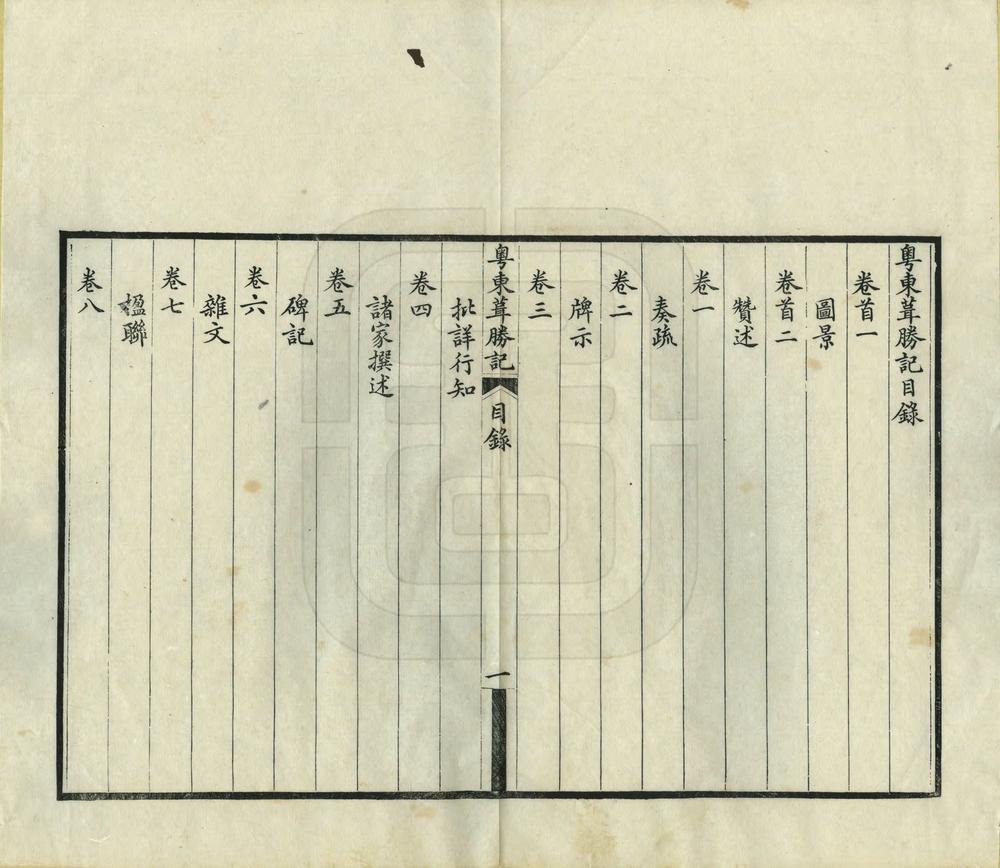 粵東葺勝記目錄
卷首一
圖景
卷首二
贊述
卷一
奏疏
卷二
牌示
卷三
粵東葺勝記
目錄
一
批詳行知
卷四
諸家撰述
卷五
碑記
卷六
雜文
卷七
楹聯
卷八